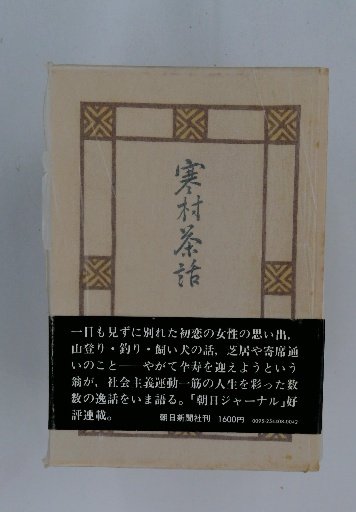 寒村茶話
一目も見ずに別れた初恋の女性の思い出，
山登り・釣り・飼い犬の話，芝居や寄席通
いのこと――やがて卆寿を迎えようという
翁が，社会主義運動一筋の人生を彩った数
数の逸話をいま語る。「朝日ジャーナル」好
評連載。
朝日新聞社刊 1600円 0095-254408-0042